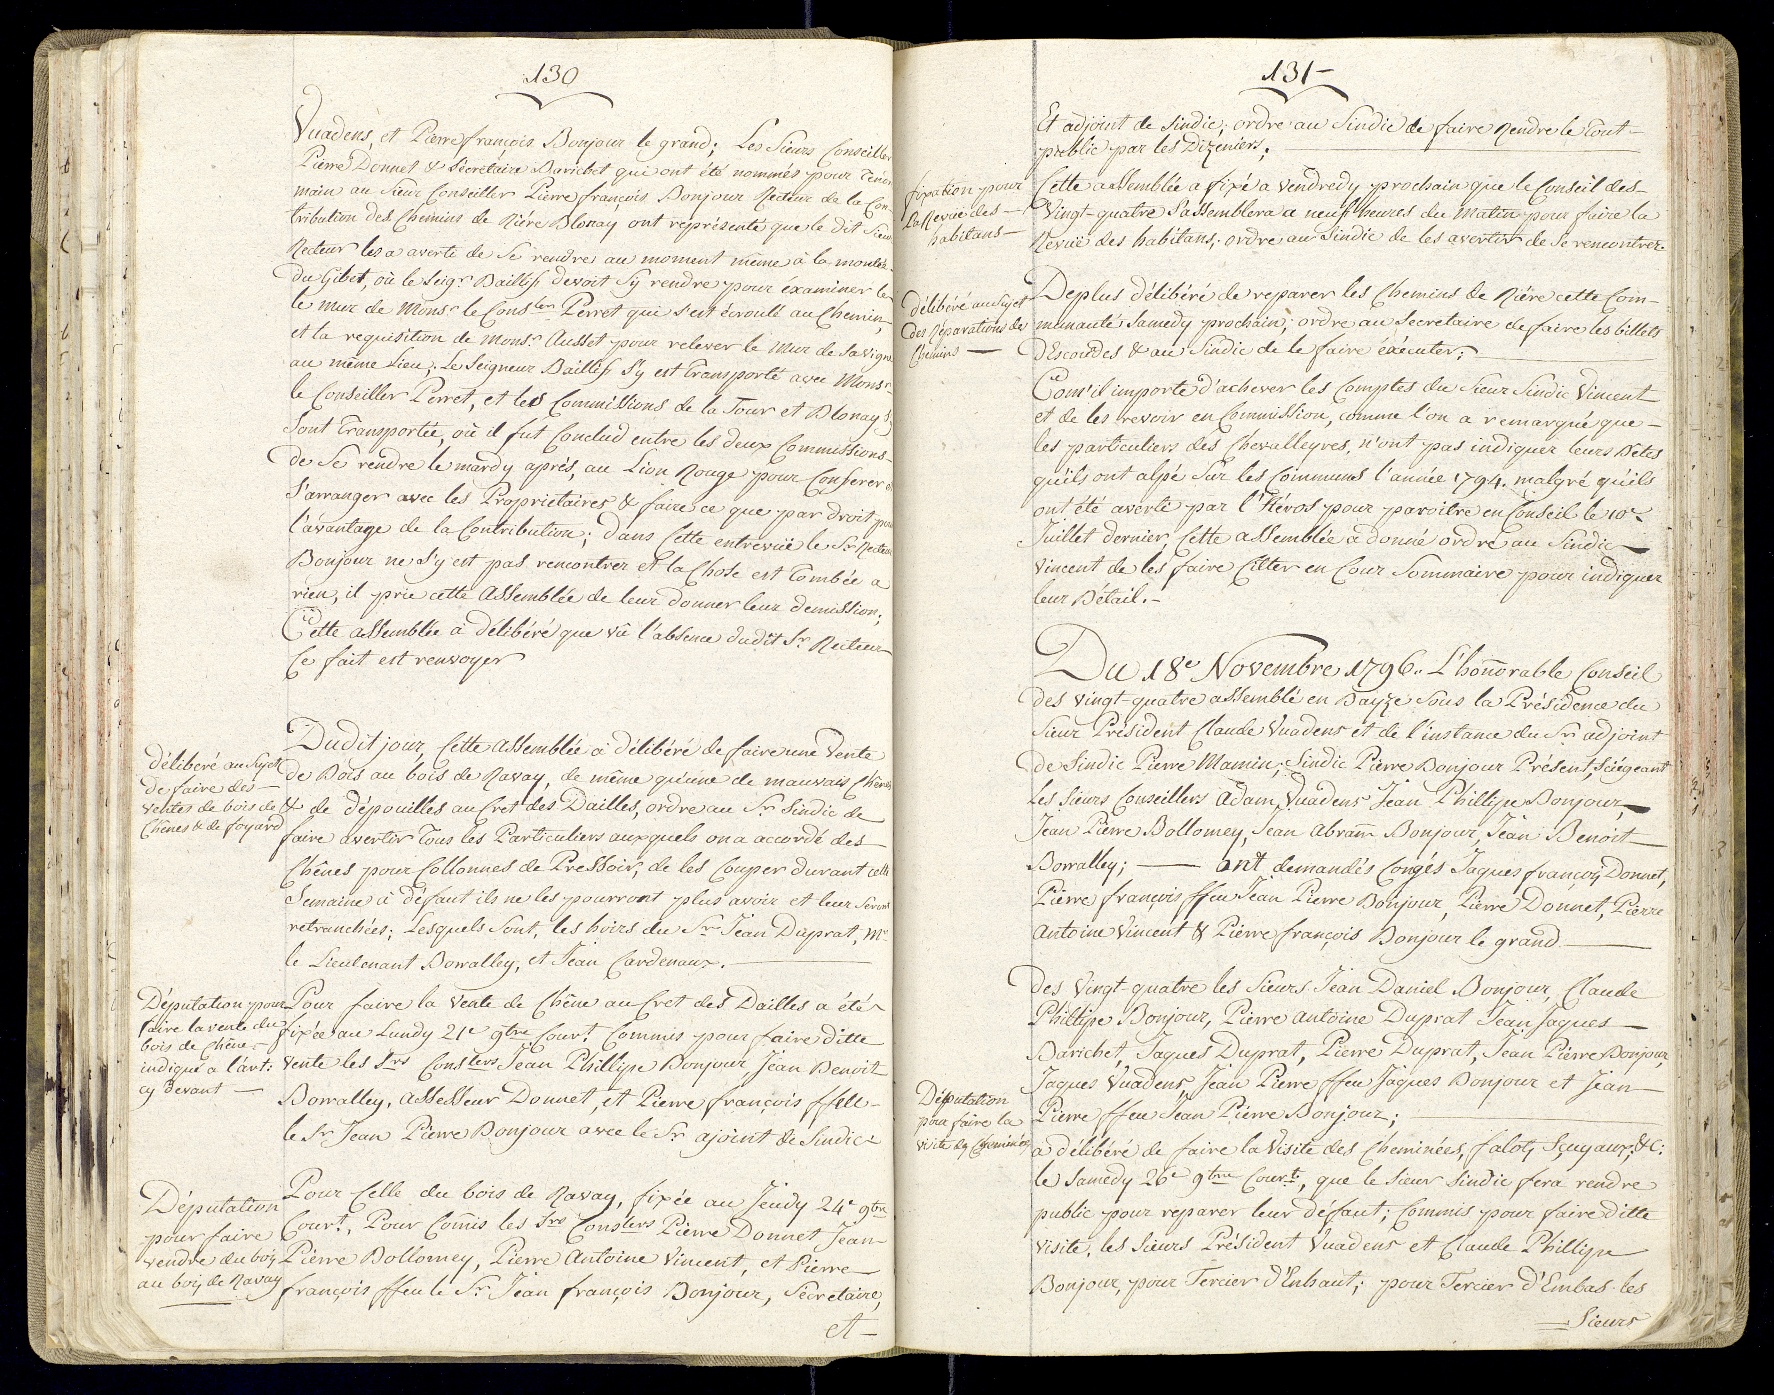 130
Vuadens, et Pierre françois Bonjour le grand; Les Sieurs Conseiller
Pierre Donnet & Sécrétaire Barichet qui ont été nommés pour tenir
main au Sieur Conseiller Pierre françois Bonjour Recteur de la Con-
tribution des Chemins de Riére Blonay ont représenté que le dit Sieur
Recteur les a averti de se rendre au moment même à la montée
du Gibet, où le Seigr Baillif devoit s'y rendre pour examiner le
le mur de Monsr le Conster Perret qui s'est écroulé au Chemin,
et la requisition de Monsr Ausset pour relever le mur de sa vigne
au même Lieu; Le Seigneur Baillif s'y est transporté avec Monsr
le Conseiller Perret, et les Commissions de la Tour et Blonay s'y
sont transportée, où il fut Conclud entre les deux Commissions
de Se rendre le mardy aprés, au Lion Rouge pour Conferer et
S'arranger avec les Proprietaires & faire ce que par droit pour
l'avantage de la Contribution; dans Cette entrevuë le Sr Recteur
Bonjour ne s'y est pas rencontrer et la Chose est tombée a
rien, il prie cette Assemblée de leur donner leur demission;
Cette assemblée à délibéré que vû l'absence dudit Sr Recteur
Ce fait est renvoyer
délibéré au Sujet
de faire des
ventes de bois de
Chênes & de foyard
Dudit jour, Cette Assemblée à délibéré de faire une Vente
de Bois au bois de Ravay, de même qu'une de mauvais Chênes
& de dépouilles au Cret des Dailles, ordre au Sr Sindic de
faire avertir tous les Particuliers auxquels on a accordé des
Chênes pour Collonnes de Pressoir, de les Couper durant cette
Semaine à défaut ils ne les pourront plus avoir et leur Seront
retranchées; Lesquels Sont, les hoirs du Sr Jean Duprat, Mr
le Lieutenant Borralley, et Jean Cardenaux.
Députation pour
faire la vente du
bois de Chêne
indiqué a l'art:
cy devant
Pour faire la vente de Chêne au Cret des Dailles a été
fixée au Lundy 21e 9bre Court. Commis pour faire ditte
vente les Srs Consters Jean Phillipe Bonjour Jean Benoit
Borralley, Assesseur Donnet, et Pierre françois ffeu
le Sr Jean Pierre Bonjour avec le Sr ajoint de Sindic
Députation
pour faire
vendre du bois
au bois de Ravay
Pour Celle du bois de Ravay, fixée au Jeudy 24e 9bre
Court, Pour Com̃is les Srs Consters Pierre Donnet Jean
Pierre Bollomey, Pierre Antoine Vincent, et Pierre
françois ffeu le Sr Jean françois Bonjour, Sécrétaire,
et
131
Et adjoint de Sindic; ordre au Sindic de faire Rendre le tout
public par les Dizeniers;
fixation pour
la Revuë des
habitans
Cette assemblée a fixé a vendredy prochain que le Conseil des
Vingt-quatre S'assemblera a neuf heures du Matin pour faire la
Revuë des habitans, ordre au Sindic de les avertir de Se rencontrer.
délibéré au Sujet
des Réparations des
Chemins
De plus délibéré de reparer les Chemins de Riére cette Com-
munauté Samedy prochain; ordre au Secretaire de faire les billets
d'Escoüdes & au Sindic de le faire éxécuter;
Com'il importe d'achever les Comptes du Sieur Sindic Vincent
et de les revoir en Commission, comme l'on a remarqué que
les particuliers des Chevalleyres, n'ont pas indiquer leurs Bêtes
qu'ils ont alpé sur les Communs l'année 1794. malgré qu'ils
ont été averti par l'Héros pour paroitre en Conseil le 10e
Juillet dernier, Cette assemblée à donné ordre au Sindic
Vincent de les faire Citter en Cour Sommaire pour indiquer
leur Bétail.
Du 18e Novembre 1796. L'hoñorable Conseil
des vingt-quatre assemblé en Bayze Sous la Présidence du
Sieur Président Claude Vuadens et de l'instance du Sr adjoint
de Sindic Pierre Mamin; Sindic Pierre Bonjour Présent, Siégeant
Les Sieurs Conseillers Adam Vuadens Jean Phillipe Bonjour,
Jean Pierre Bollomey, Jean Abram Bonjour, Jean Benoit
Borralley; ont demandés Congés Jaques françois Donnet,
Pierre françois ffeu Jean Pierre Bonjour, Pierre Donnet, Pierre
Antoine Vincent & Pierre françois Bonjour le grand
des Vingt quatre les Sieurs Jean Daniel Bonjour, Claude
Phillipe Bonjour, Pierre Antoine Duprat Jean Jaques
Barichet, Jaques Duprat, Pierre Duprat, Jean Pierre Bonjour,
Jaques Vuadens Jean Pierre ffeu Jaques Bonjour et Jean
Pierre ffeu Jean Pierre Bonjour;
Députation
pour faire la
visite des Cheminées
a délibéré de faire la Visite des Cheminées, falots, Seuyaux, &c:
le Samedy 26e 9bre Court, que le Sieur Sindic fera rendre
public pour reparer leur défaut; Commis pour faire ditte
visite, les Sieurs Président Vuadens et Claude Phillipe
Bonjour, pour Tercier d'Enhaut; pour Tercier d'Embas les
Sieurs